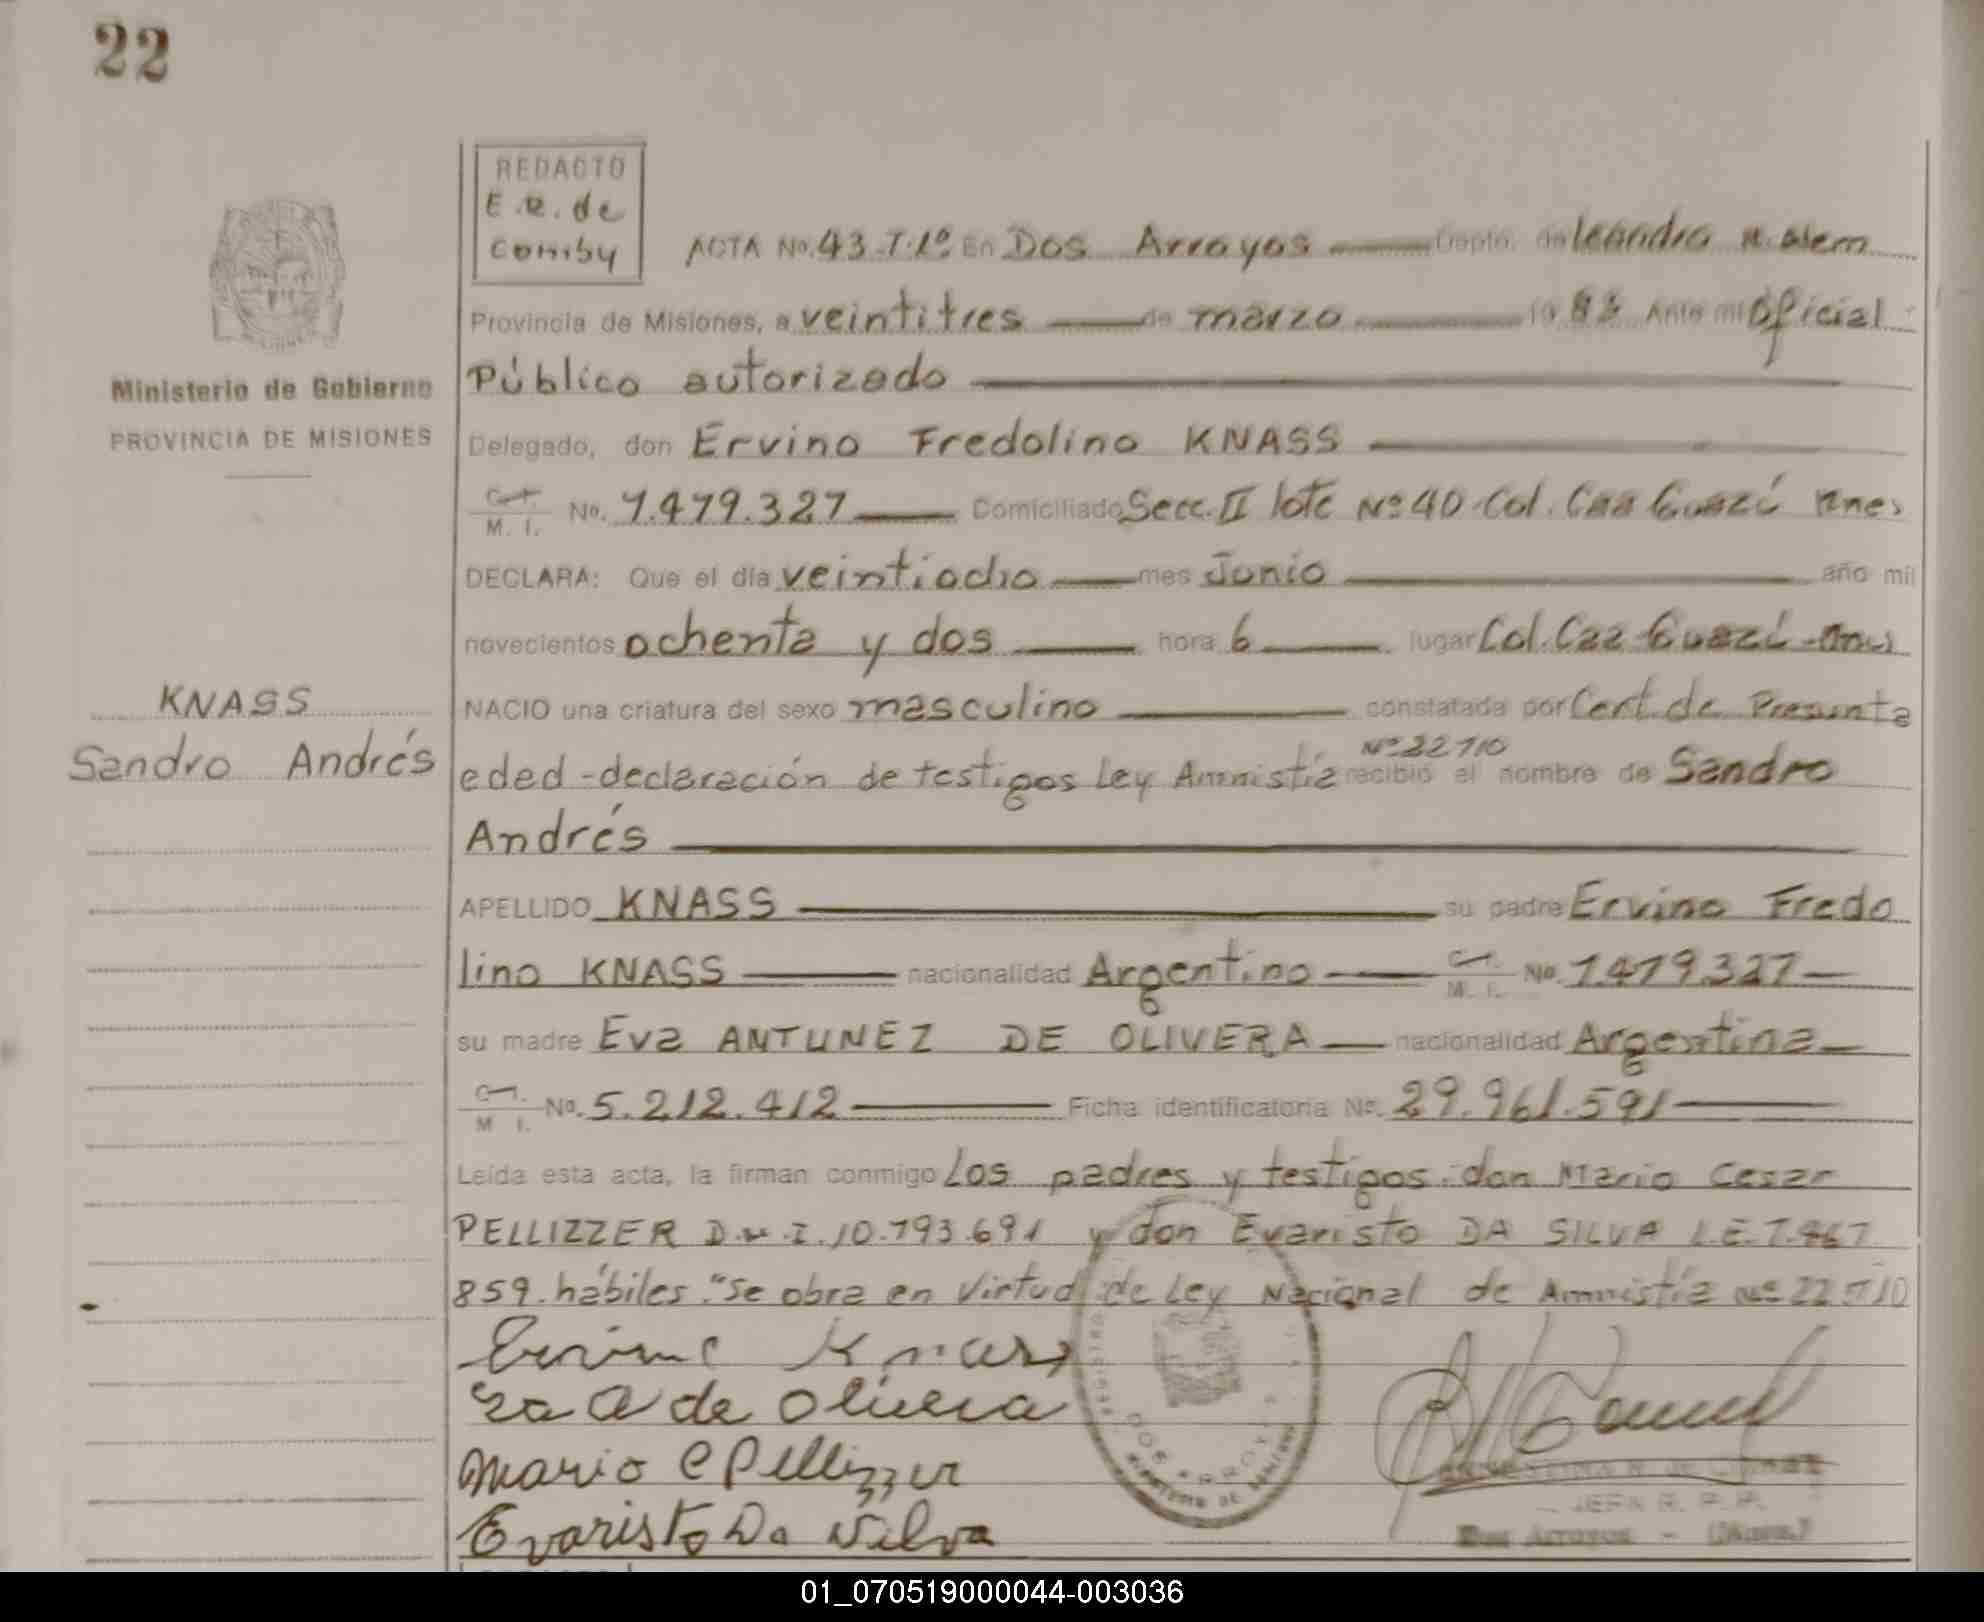 22
REDACTO
E.R. de
Comby
ACTA No. 43-T.1º En Dos Arroyos Depto. de leandro n. alem
Provincia de Misiones, a veintitres de marzo 19 83 Ante mi Oficial
Público autorizado
Ministerio de Gobierno
PROVINCIA DE MISIONES
Delegado, don Ervino Fredolino KNASS
M. I. No. 7.479.327 Domiciliado Secc. II lote Nº 40-Col. Caa Guazú Mnes
DECLARA: Que el día veintiocho mes Junio año mil
novecientos ochenta y dos hora 6 lugar Col. Caa-Guazú-Mnes
KNASS
Sandro Andrés
NACIO una criatura del sexo masculino constatada por Cert. de Presunta
edad-declaración de testigos Ley Amnistía Nº 22710 recibió el nombre de Sandro
Andrés
APELLIDO KNASS su padre Ervino Fredo
lino KNASS nacionalidad Argentino M. I. No. 7.479.327
su madre Eva ANTUNEZ DE OLIVERA nacionalidad Argentina
M I. No. 5.212.412 Ficha identificatoria No. 29.961.591
Leída esta acta, la firman conmigo Los padres y testigos: don Mario Cesar
PELLIZZER D.N.I. 10.793.691 y don Evaristo DA SILVA L.E. 7.467
859. hábiles. "Se obra en Virtud de Ley Nacional de Amnistía Nº
Ervino Knass
Eva A de Olivera
Mario C Pellizzer
Evaristo Da Silva
REGISTRO
DOS ARROYOS
JEFA R. P. P.
Dos Arroyos - (Mnes.)
01_070519000044-003036